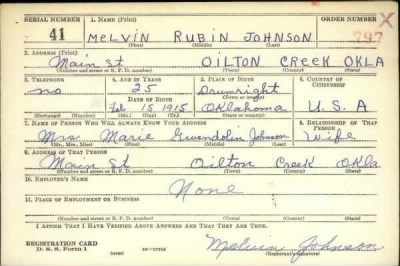 SERIAL NUMBER 1. NAME (Print) ORDER NUMBER
41 MELVIN RUBIN JOHNSON 797 X
(First) (Middle) (Last)
2. ADDRESS (Print)
Main St. OILTON CREEK OKLA
(Number and street or R. F. D. number) (Town) (County) (State)
3. TELEPHONE 4. AGE IN YEARS 5. PLACE OF BIRTH 6. COUNTRY OF CITIZENSHIP
no 25 Drumright
DATE OF BIRTH (Town or county)
Feb 15 1915 Oklahoma U.S.A
(Exchange) (Number) (Mo.) (Day) (Yr.) (State or country)
7. NAME OF PERSON WHO WILL ALWAYS KNOW YOUR ADDRESS 8. RELATIONSHIP OF THAT PERSON
Mrs Marie Gwendolin Johnson Wife
(Mr., Mrs., Miss) (First) (Middle) (Last)
9. ADDRESS OF THAT PERSON
Main St Oilton Creek Okla
(Number and street or R. F. D. number) (Town) (County) (State)
10. EMPLOYER'S NAME
None
11. PLACE OF EMPLOYMENT OR BUSINESS
(Number and street or R. F. D. number) (Town) (County) (State)
I AFFIRM THAT I HAVE VERIFIED ABOVE ANSWERS AND THAT THEY ARE TRUE.
REGISTRATION CARD
D. S. S. Form 1 Melvin Johnson
(Registrant's signature)